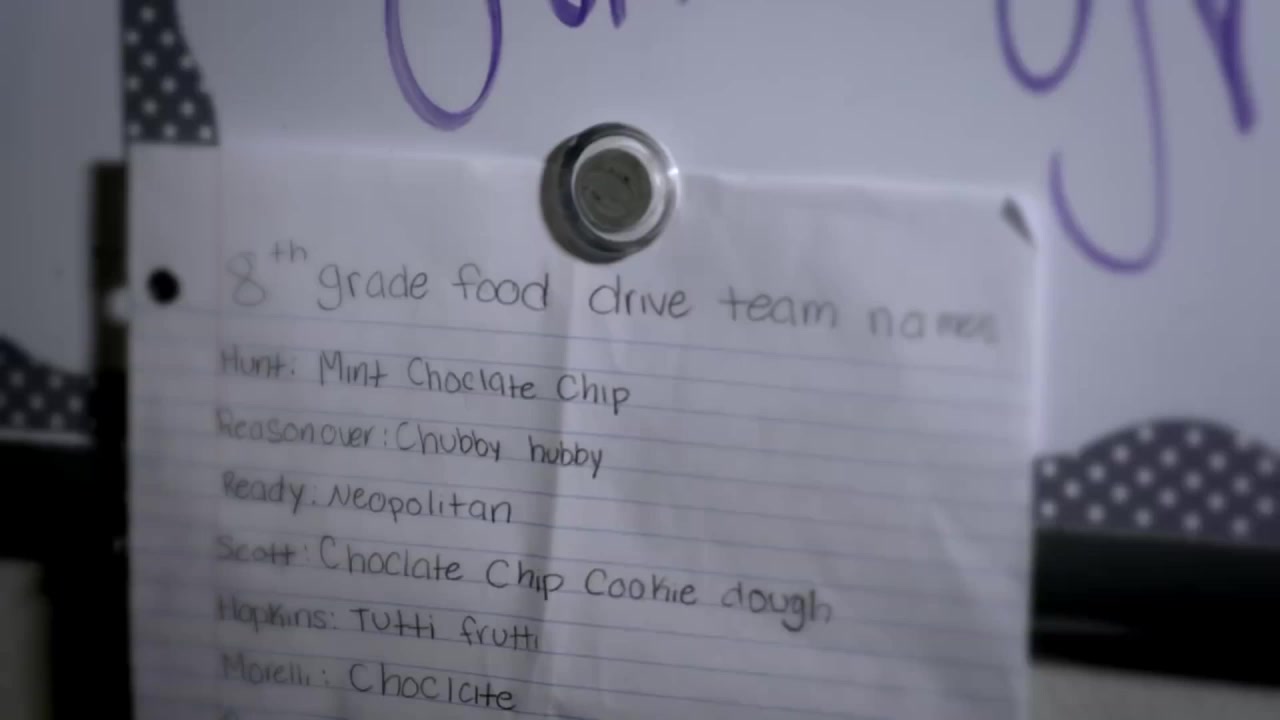 8th grade food drive team names
Hunt: Mint Choclate Chip
Reasonover: Chubby hubby
Ready: Neopolitan
Scott: Choclate Chip Cookie dough
Hopkins: Tutti frutti
Morelli: Choclate